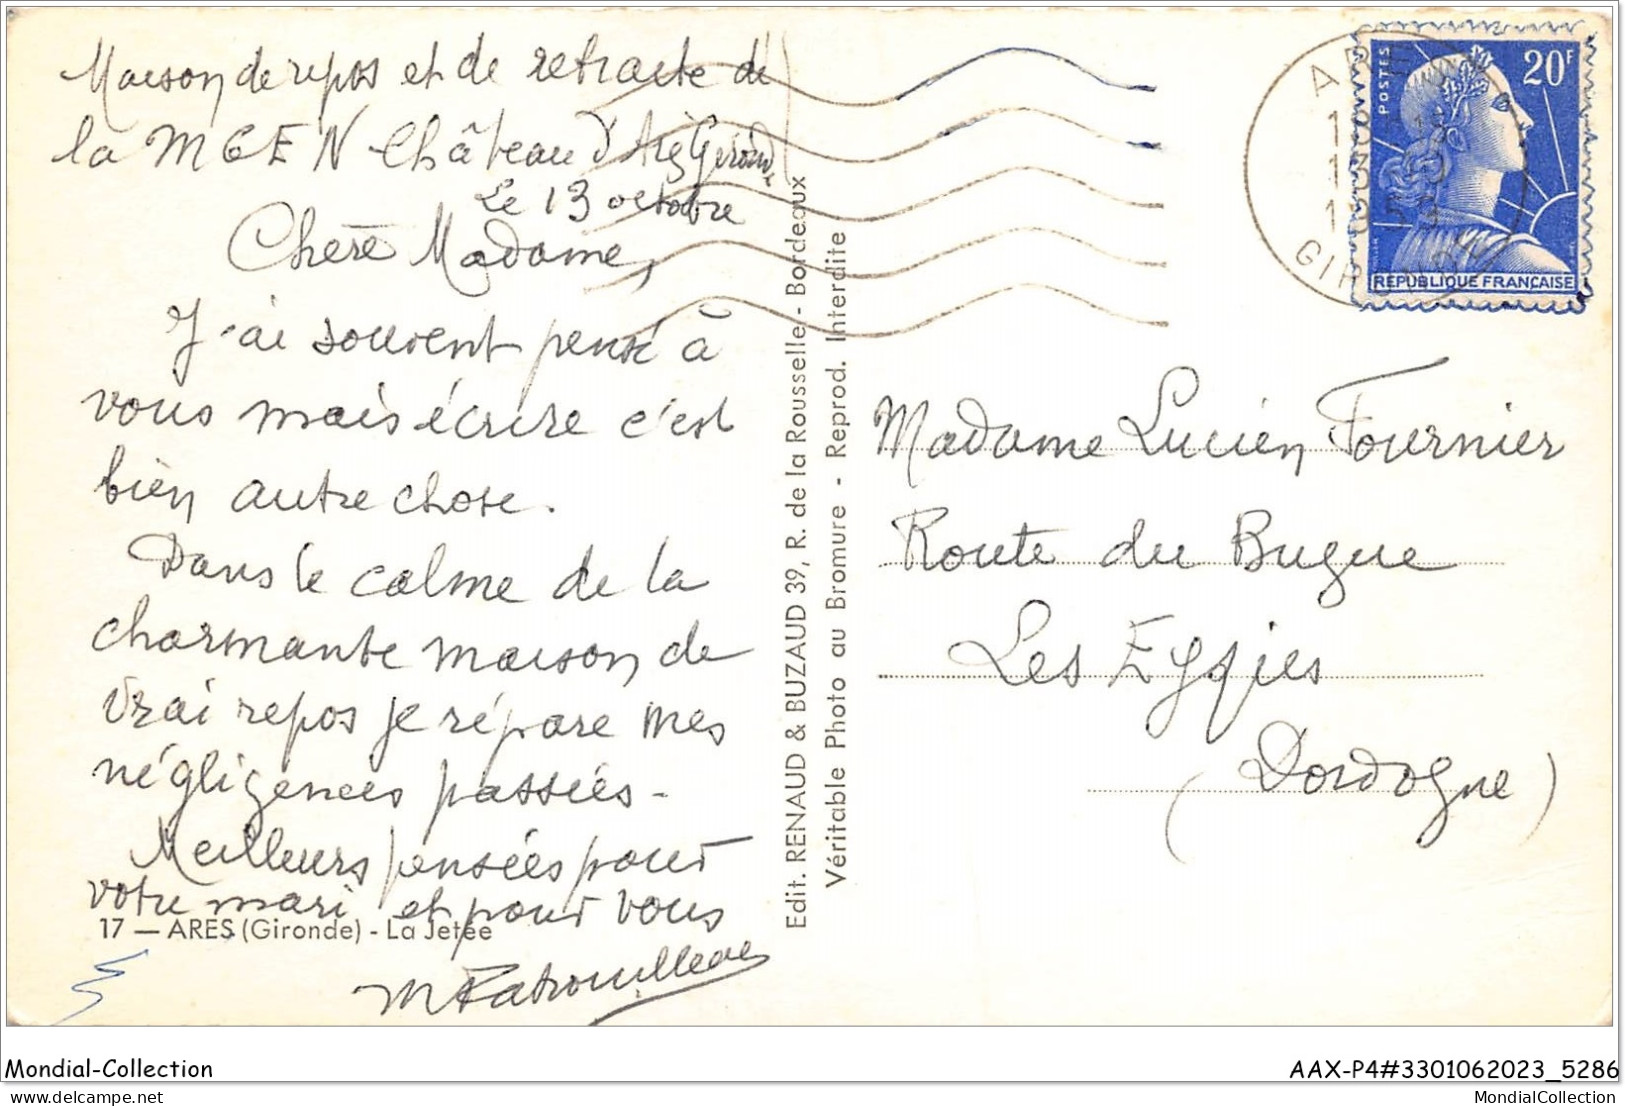 Maison de repos et de retraite de
la MGEN Château d'Arès Gironde
Le 13 octobre
Chère Madame,
J'ai souvent pensé à
vous mais écrire c'est
bien autre chose.
Dans le calme de la
charmante maison de
vrai repos je répare mes
négligences passées -
Meilleurs pensées pour
votre mari et pour vous
17 — ARES (Gironde) - La Jetée
Edit. RENAUD & BUZAUD 39, R. de la Rousselle - Bordeaux
Véritable Photo au Bromure - Reprod. Interdite
POSTES
20F
REPUBLIQUE FRANÇAISE
GIRONDE
Madame Lucien Fournier
Route du Bugue
Les Eyzies
(Dordogne)
Mondial-Collection
AAX-P4#3301062023_5286
MondialCollection